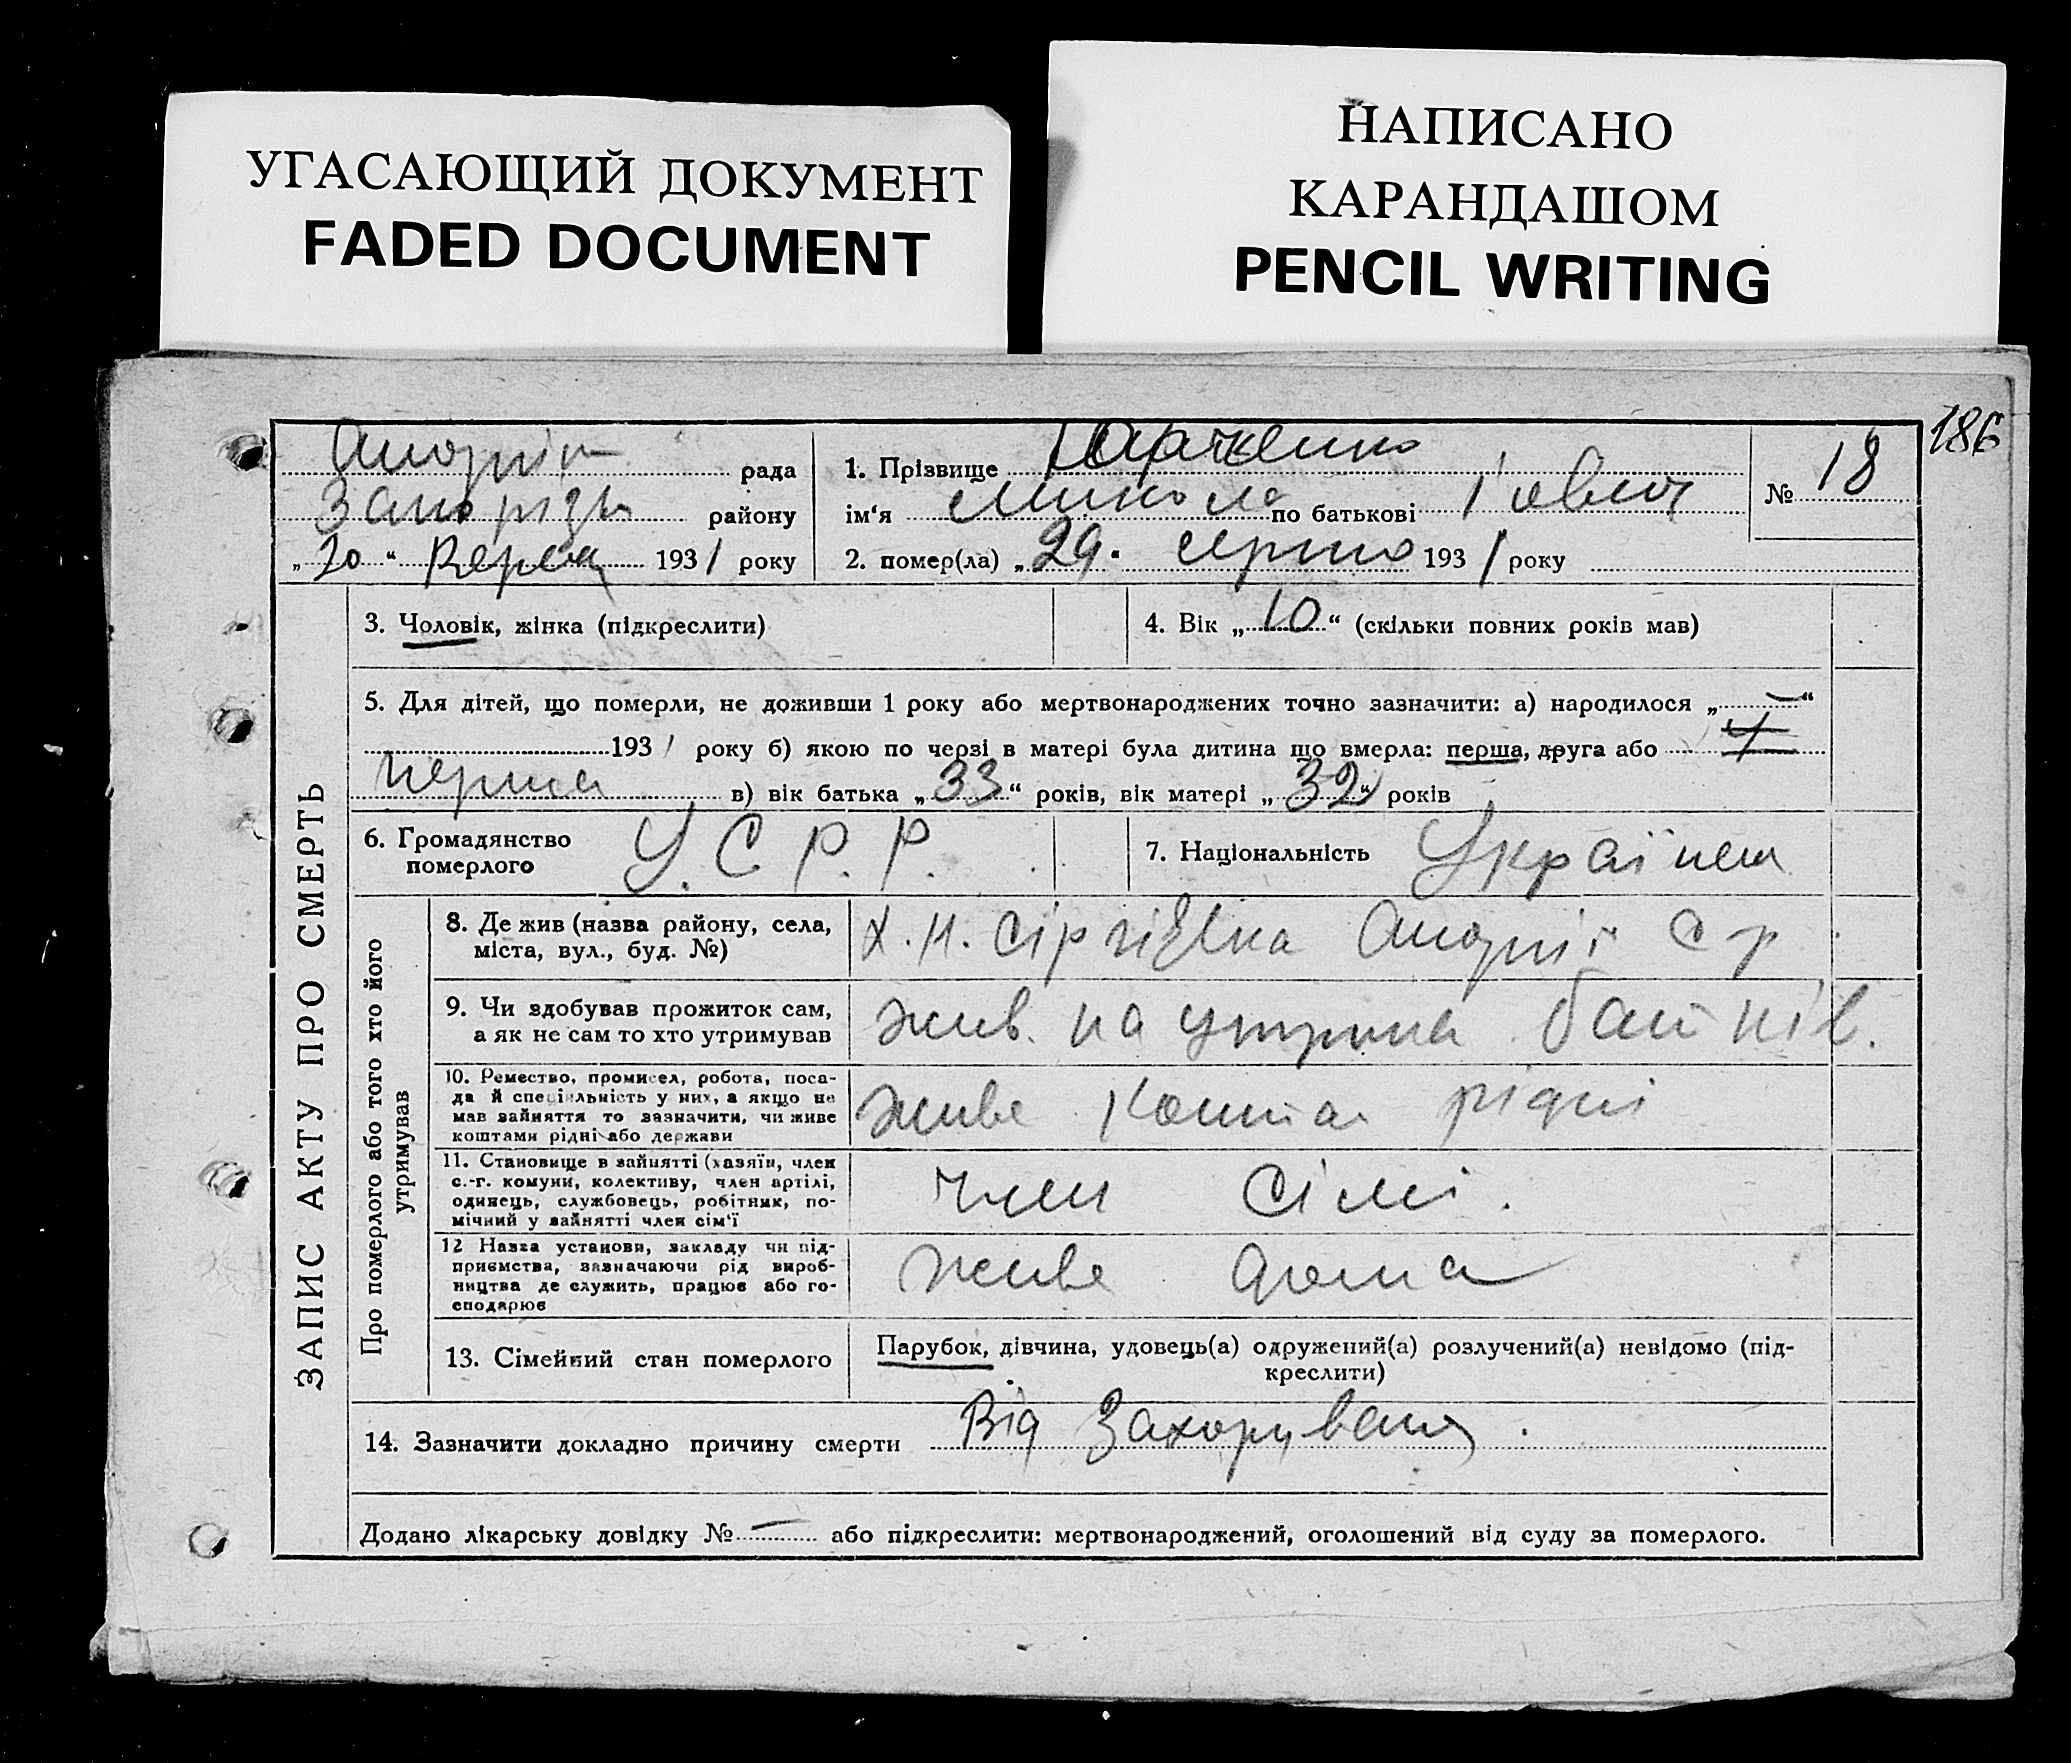 УГАСАЮЩИЙ ДОКУМЕНТ
FADED DOCUMENT
НАПИСАНО
КАРАНДАШОМ
PENCIL WRITING
186
рада
району
„20“ 1931 року
1. Прізвище
ім‘я Микола по батькові
2. помер(ла) „29. серпня 1931 року
№ 18
ЗАПИС АКТУ ПРО СМЕРТЬ
3. Чоловік, жінка (підкреслити)
4. Вік „10“ (скільки повних років мав)
5. Для дітей, що померли, не доживши 1 року або мертвонароджених точно зазначити: а) народилося „—“
1931 року б) якою по черзі в матері була дитина що вмерла: перша, друга або
перша в) вік батька „33“ років, вік матері „32“ років
6. Громадянство
померлого
У. С. Р. Р.
7. Національність Українець
Про померлого або того хто його
утримував
8. Де жив (назва району, села,
міста, вул., буд. №)
Х. Н. Сіргіївка
9. Чи здобував прожиток сам,
а як не сам то хто утримував
жив. на утрима батьків.
10. Ремество, промисел, робота, поса-
да й спеціяльність у них, а якщо не
мав зайняття то зазначити, чи живе
коштами рідні або держави
живе рідні
11. Становище в зайнятті (хазяїн, член
с.-г. комуни, колективу, член артілі,
одинець, службовець, робітник, по-
мічний у зайнятті член сім‘ї
член Сімі.
12 Назва установи, закладу чи під-
приємства, зазначаючи рід вироб-
ництва де служить, працює або го-
сподарює
живе дома
13. Сімейний стан померлого
Парубок, дівчина, удовець(а) одружений(а) розлучений(а) невідомо (під-
креслити)
14. Зазначити докладно причину смерти Від Захорування.
Додано лікарську довідку №— або підкреслити: мертвонароджений, оголошений від суду за померлого.